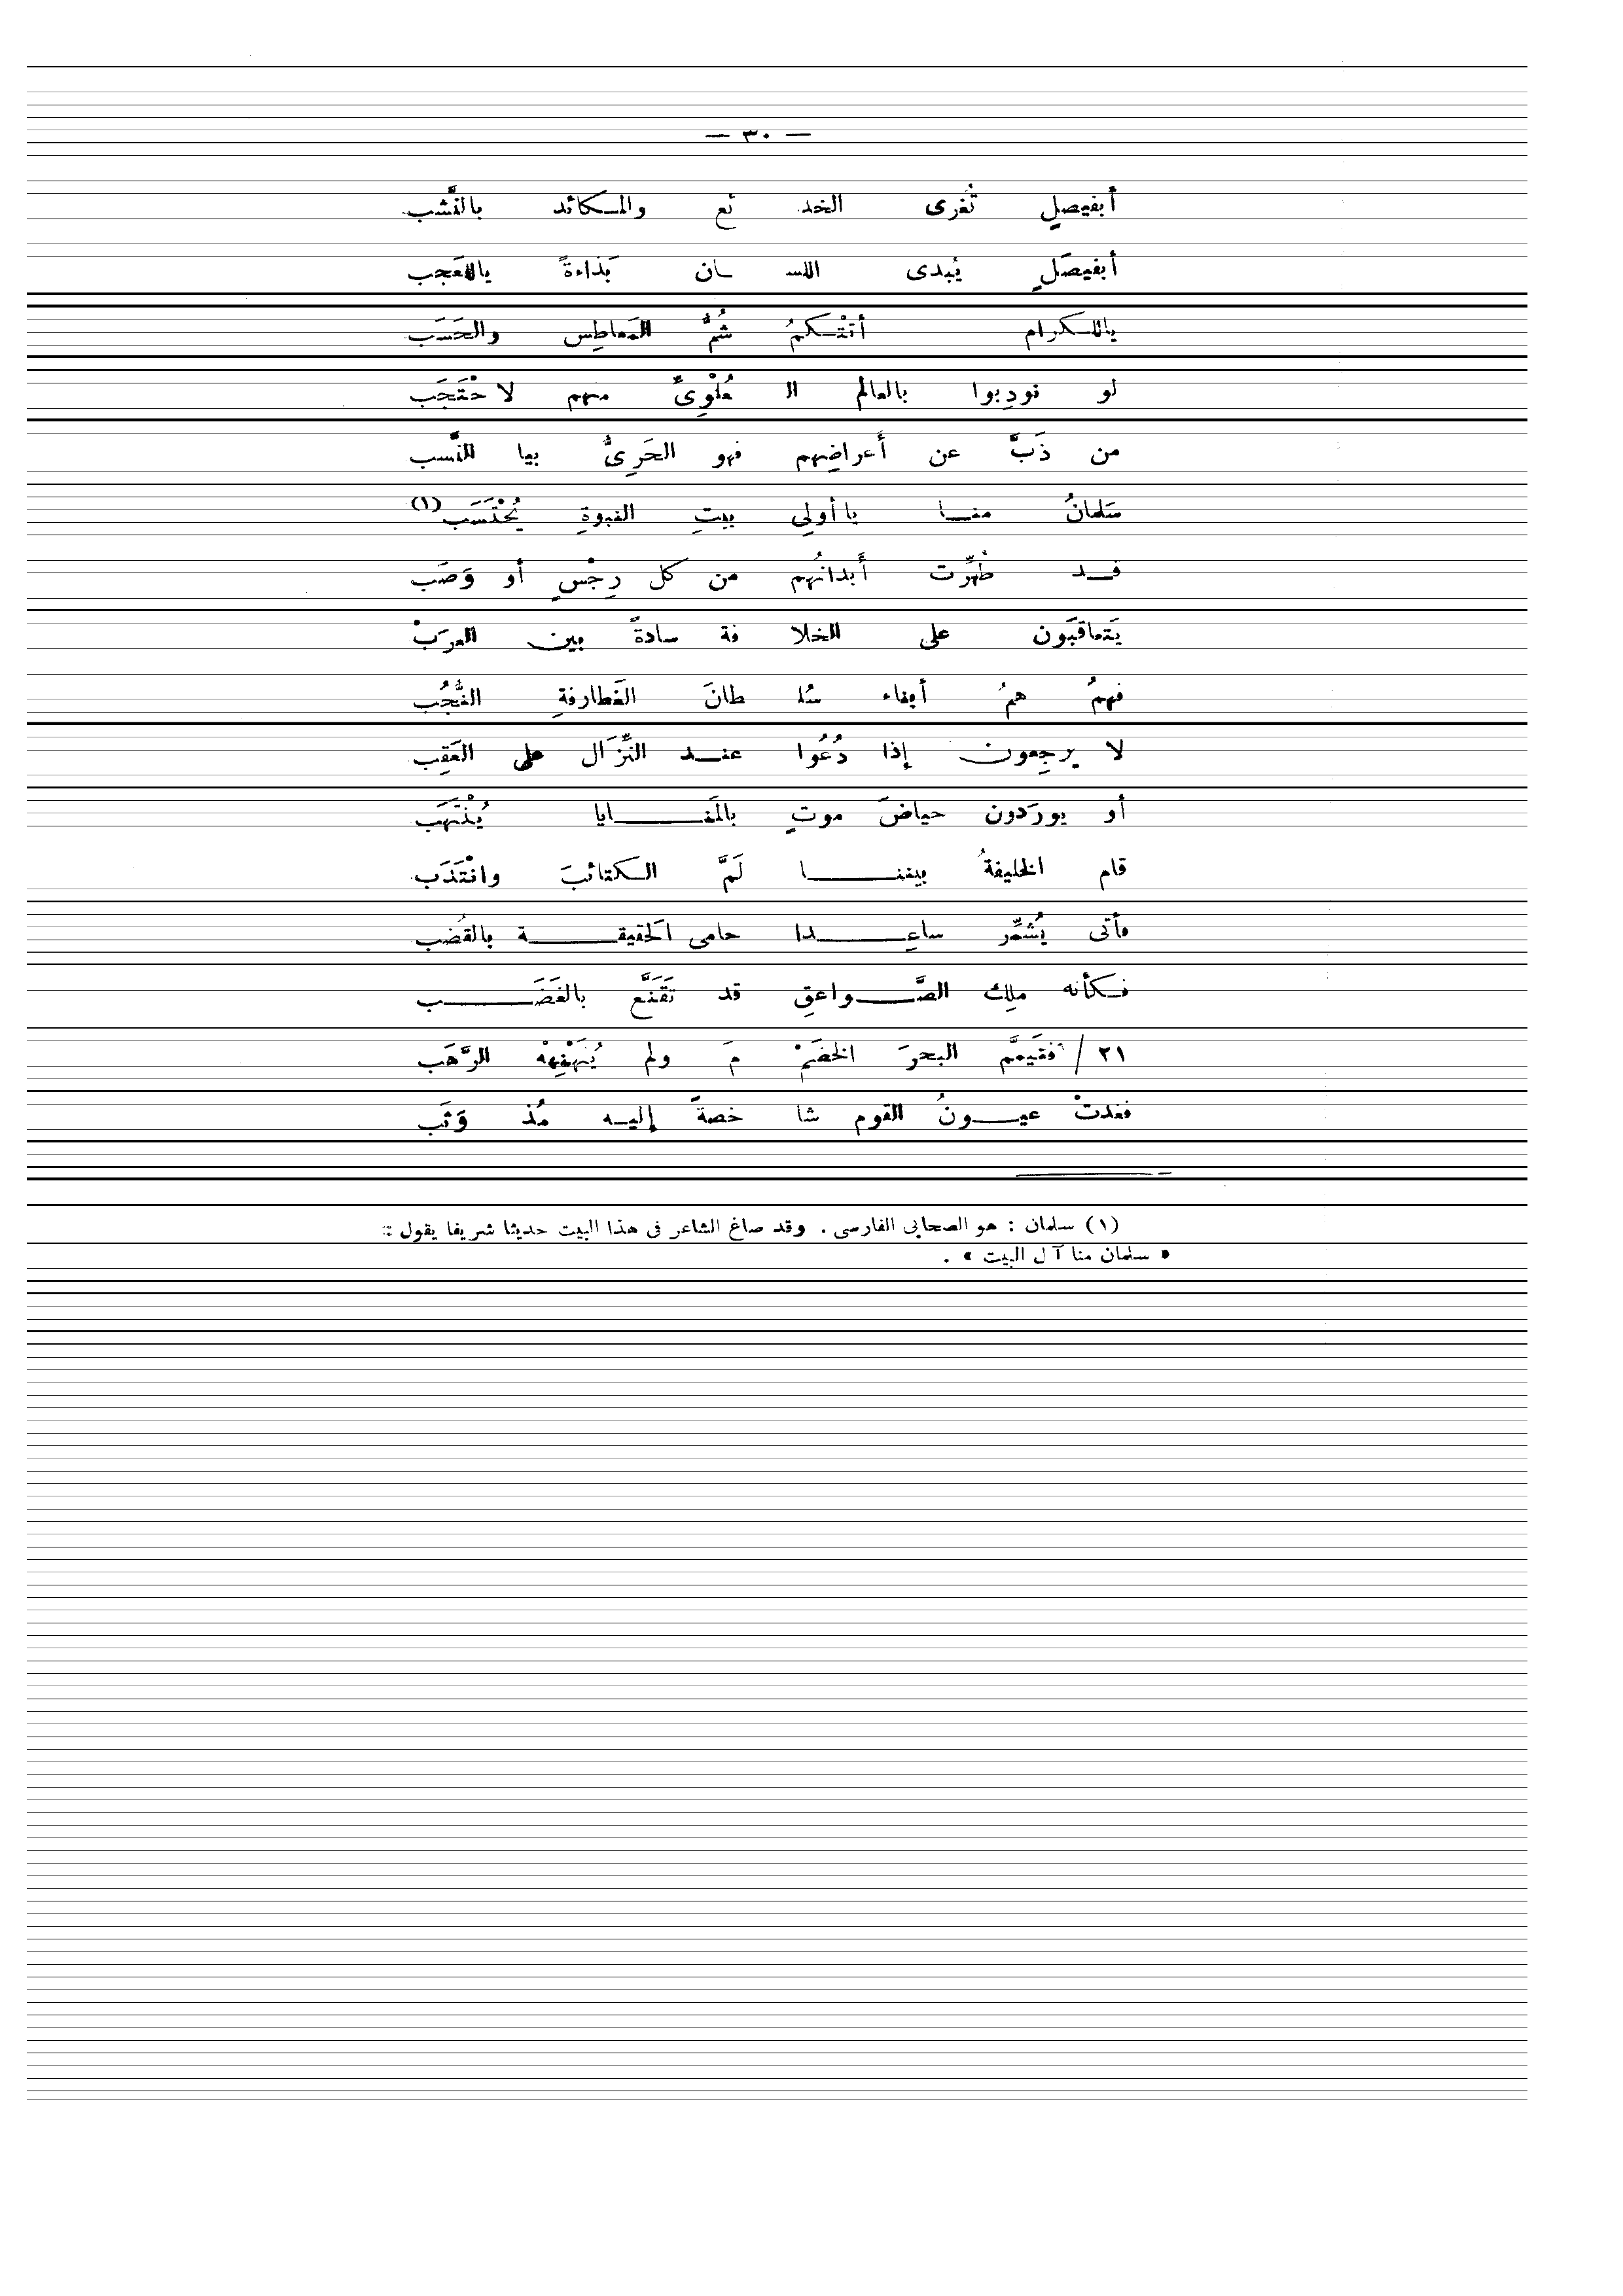 — ٣٠ —
أبفيصلٍ تُغرى الخدائع والمكائد بالنَّشب
أبفيصَلٍ يُبدى اللسان بَذاءةً ياللعَجب
ياللكرام أتتْكمُ شُمُّ المَعاطِس والحَسَب
لو نودِبوا بالعالم الـ عُلْوِىِّ منهم لاحْتَجَب
من ذَبَّ عن أَعراضِهم فهو الحَرِىُّ بها النَّسب
سَلمانُ منا يا أولِى بيتِ النبوةِ يُحْتَسَب (١)
قد طُهِّرت أَبدانُهم من كل رِجْسٍ أو وَصَب
يَتعاقبَون على الخلا فة سادةً بين العربَْ
فهمُ همُ أبناء سُلـ طانَ الغَطارفةِ النُّجُب
لا يرجِعون إذا دُعُوا عند النِّزَال على العَقِب
أو يورَدون حياضَ موتٍ بالمَنايا يُنْتَهَب
قام الخليفةُ بيننا لَمَّ الكتائبَ وانْتَدَب
فأتى يُشمِّر ساعِدا حامى الحَقيقة بالقُضب
فكأنه ملِك الصَّواعقِ قد تَقَنَّع بالغَضَب
٢١ / فتَيمَّم البحرَ الخضَمْ مَ ولم يُنَهْنِهْهُ الرَّهَب
فغدتْ عيونُ القوم شا خصةً إليه مُذ وَثَب
(١) سلمان : هو الصحابى الفارسى . وقد صاغ الشاعر فى هذا البيت حديثا شريفا يقول :
« سلمان منا آل البيت » .